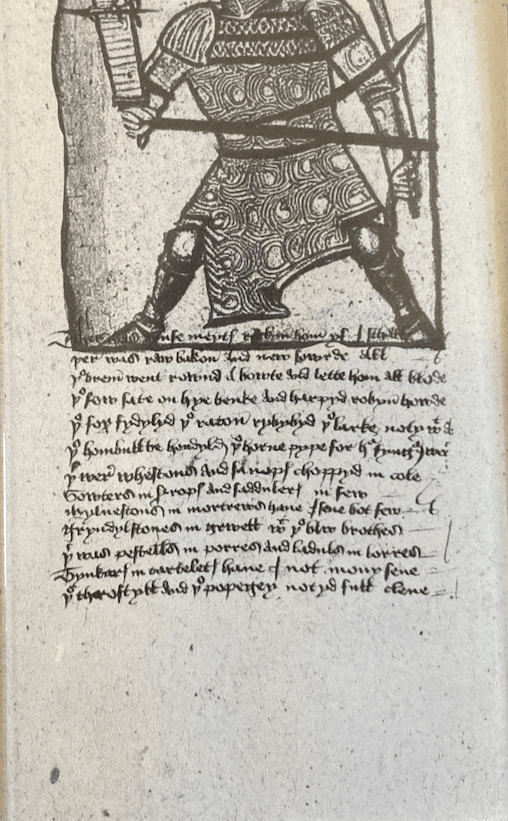 þer was raw bakon and new sowrde all
þe brem went rownd a bowte and lette hom all blode
þe sow sate on hye benke and harpyd robyn howde
þe fox fydylyd þe raton rybybyd þe larke notyd
þe hombull be hondyld þe horne pype for
þer wer whestones and fanops choppyd in cole
Sowters in syrops and saddulers in sew
mylnestons in mortrews haue I sene bot few
Gryndylstones in grwell wt þe blw brothes
þer was pestells in porres and laduls in lorres
in tartelets haue I not mony sene
þe throstyll and þe popegey notyd full clene